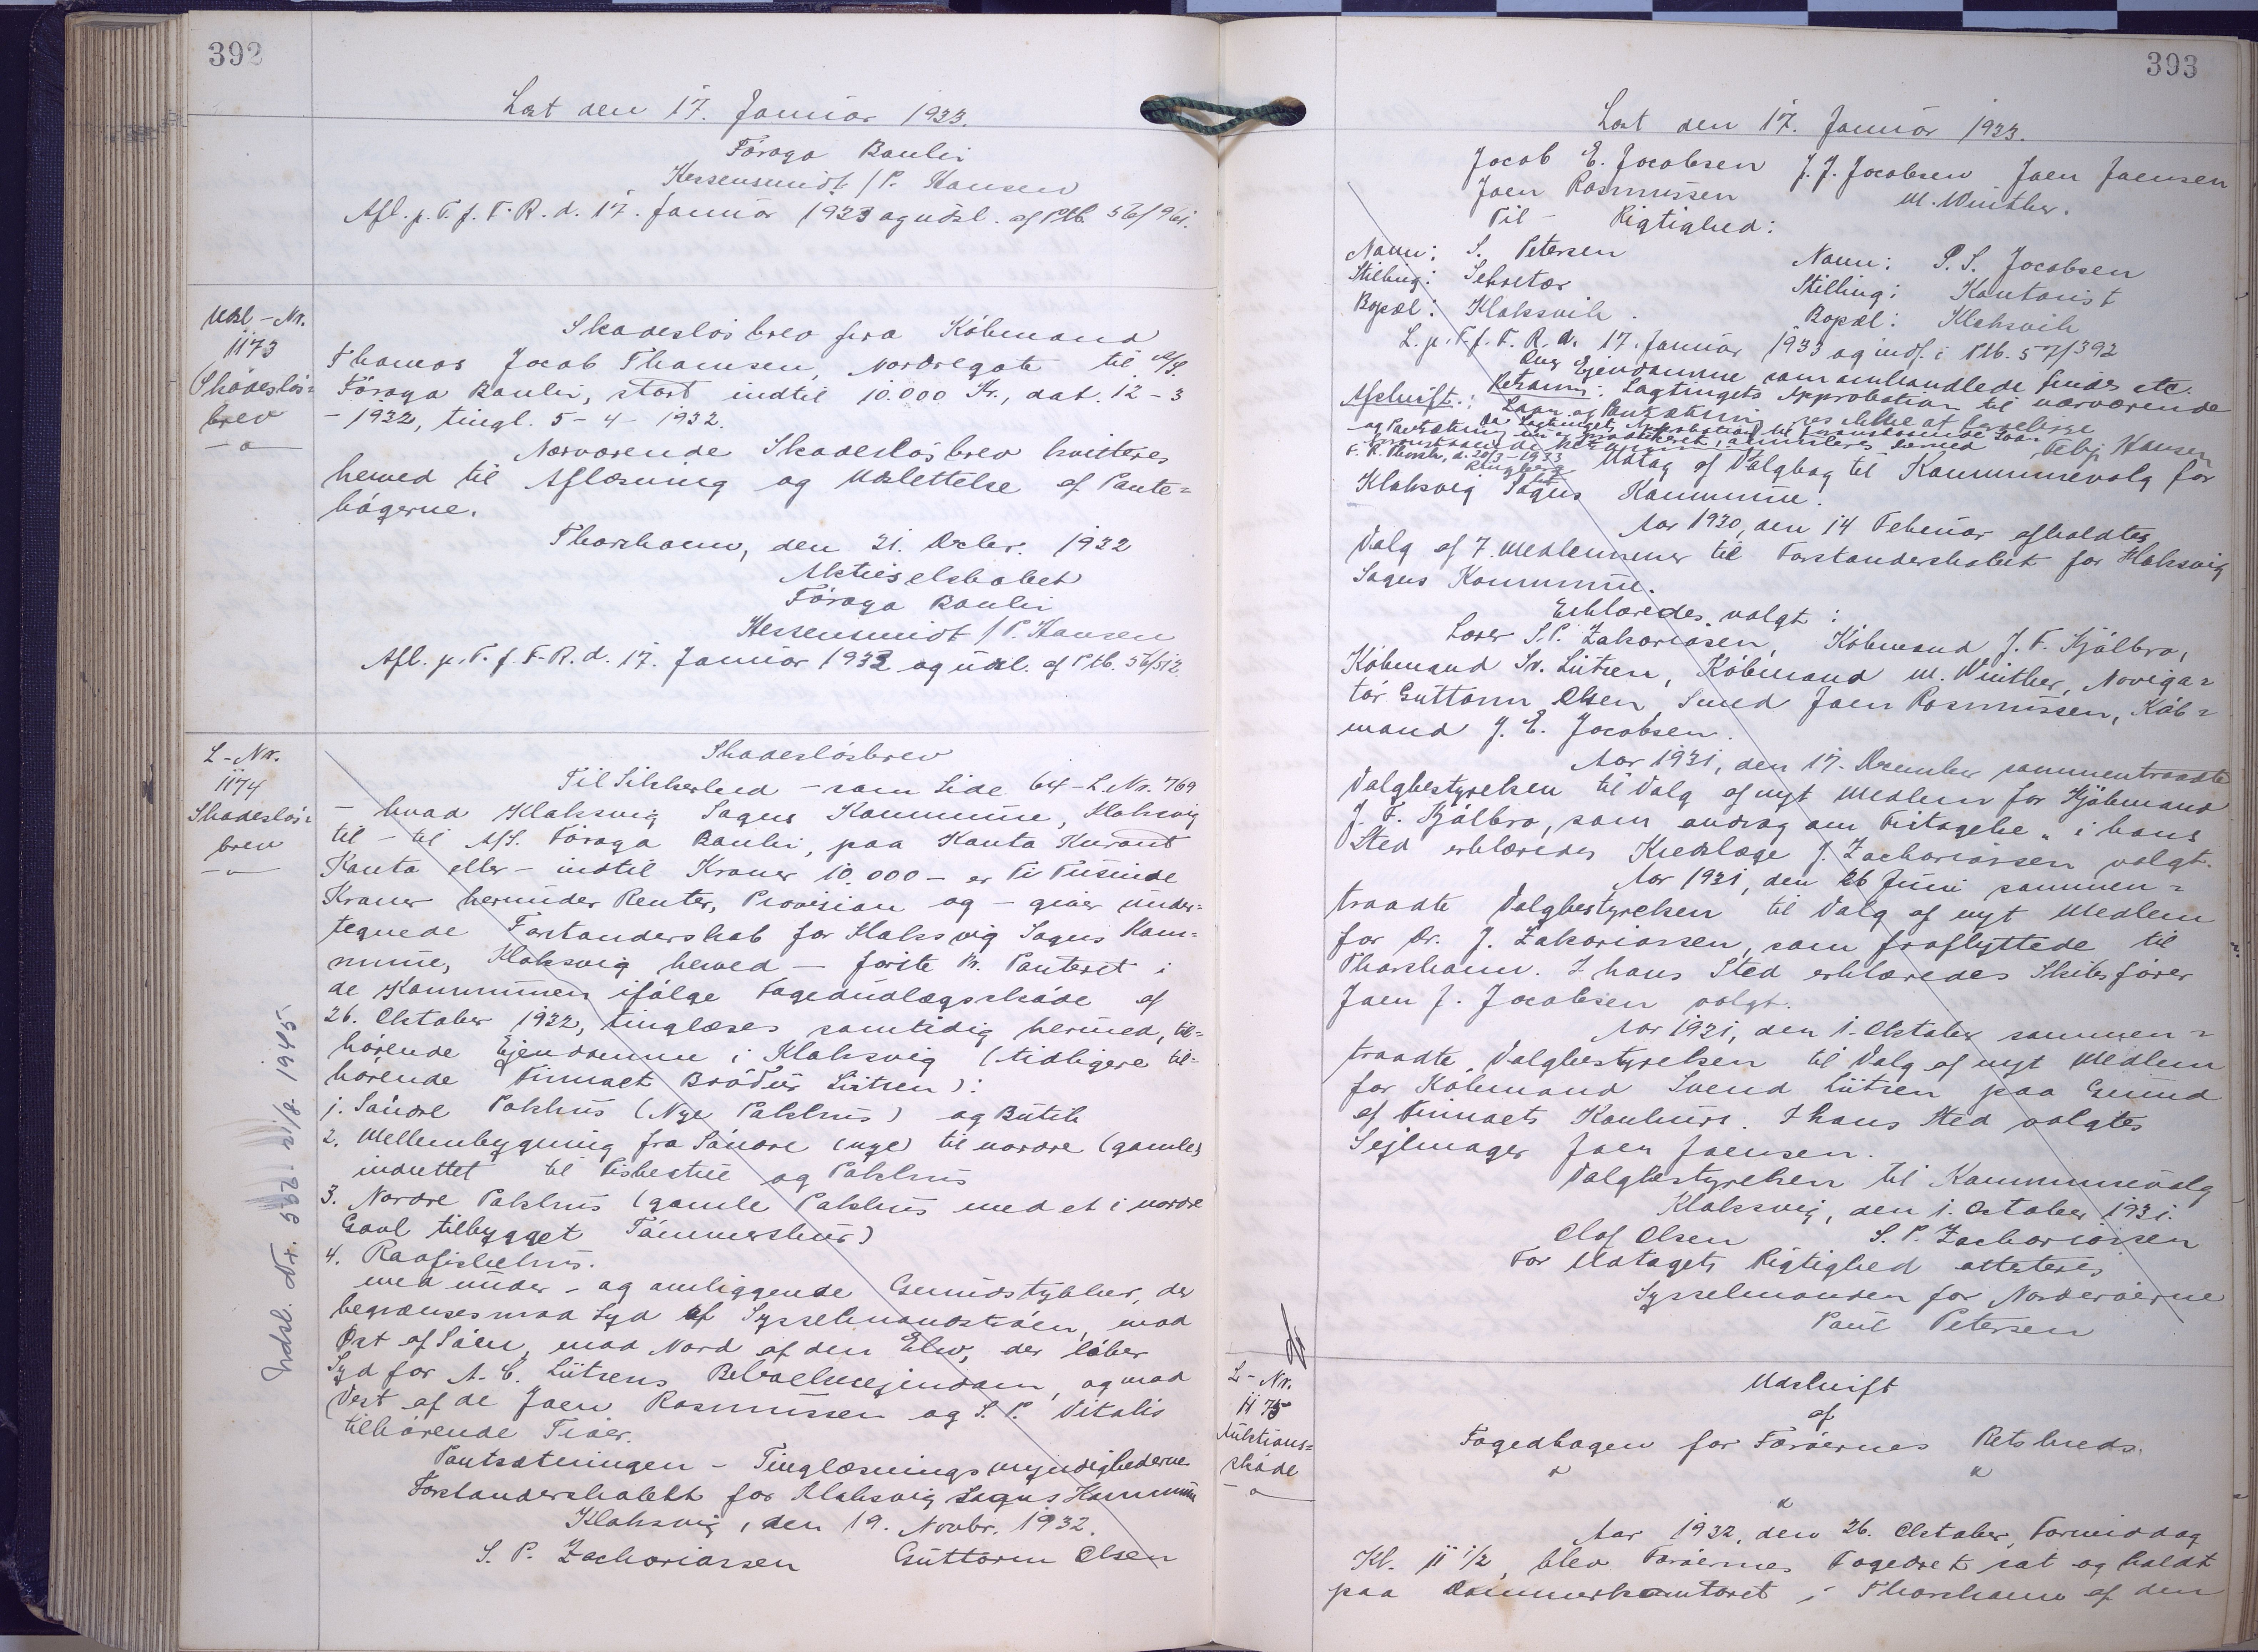 392
Læst den 17. Januar 1933.
Föroya Banki
Kessensmidt / P. Hansen
Afl. p. T. f. F. R. d. 17. Januar 1933 og udsl. af Ptb. 56/961.
Udsl-Nr.
1173
Skadeslös=
brev
Skadeslösbrev fra Købmand
Thomas Jacob Thomsen, Nordregöte til A/S.
Föroya Banki, stort indtil 10.000 Kr., dat. 12-3
-1932, tingl. 5-4-1932.
Nærværende Skadeslösbrev kvitteres
herved til Aflæsning og Udslettelse af Pante=
bøgerne.
Thorshavn, den 31. Decbr. 1932
Aktieselskabet
Föroya Banki
Kessensmidt / P. Hansen
Afl. p. T. f. F. R. d. 17. Januar 1933 og udsl. af Ptb. 56/512.
L-Nr.
1174
Skadeslös=
brev
Indsl. Nr. 552 21/8 1945
Skadeslösbrev
Til Sikkerhed - som Side 64 - L. Nr. 769
- hvad Klaksvig Sogns Kommune, Klaksvig
til - til A/S. Föroya Banki, paa Konto Kurant
Konto eller - indtil Kroner 10.000 - er Ti Tusinde
Kroner herunder Renter, Provision og - giver under=
tegnede Forstanderskab for Klaksvig Sogns Kom=
mune, Klaksvig herved - første Pr. Panteret i
de Kommunen ifølge Fogedudlægsskøde af
26. Oktober 1932, tinglæses samtidig hermed, til=
hørende Ejendomme i Klaksvig (tidligere til=
hørende Firmaet Brødur Lützen):
1. Søndre Pakhus (Nye Pakhus) og Butik
2. Mellembygning fra Søndre (nye) til nordre (gamle)
indrettet til Fiskestue og Pakhus
3. Nordre Pakhus (gamle Pakhus med et i nordre
Gavl tilbygget Tömmerskur)
4. Raafiskehus.
med under- og omliggende Grundstykker, der
begrænses mod Syd af Sysselmandstøen, mod
Øst af Søen, mod Nord af den Elv, der løber
Syd for A. C. Lützens Beboelsesejendom, og mod
Vest af de Joen Rasmussen og S. P. Vitalis
tilhørende Tioer.
Pantsætningen - Tinglæsningsmyndighederne
Forstanderskabet for Klaksvig Sogns Kommune
Klaksvig, den 19. Novbr. 1932.
S. P. Zachariassen Guttorm Olsen
393
Læst den 17. Januar 1933.
Jacob E. Jacobsen J. J. Jacobsen Joen Joensen
Joen Rasmussen M. Winther.
Til Rigtighed:
Navn: S. Petersen Navn: P. S. Jacobsen
Stilling: Sekretær Stilling: Kontorist
Bopæl: Klaksvik. Bopæl: Klaksvik
L. p. T. f. F. R. d. 17. Januar 1933 og indf. i Ptb. 57/392
Ang Ejendomme som omhandlede findes etc.
Retsanm: Lagtingets Approbation til nærværende
Laan og Pantsætning ses ikke at foreligge
Afskrift:
Da Lagtingets Approbation til foranstaaende Laan
og Pantsætning nu er produceret, annulleres herved
foranstaaende Retsanm.
F. R. Thorsh., d. 28/3-1933 Felix Hansen
Ringberg
Udtog af Valgbog til Kommunevalg for
Klaksvig Sogns Kommune.
Aar 1930, den 14 Februar afholdtes
Valg af 7 Medlemmer til Forstanderskabet for Klaksvig
Sogns Kommune.
Erklæredes valgt:
Lærer S. P. Zakariasen, Købmand J. F. Kjølbro,
Købmand Sv. Lützen, Købmand M. Winther, Naviga=
tør Guttorm Olsen, Smed Joen Rasmussen, Køb=
mand J. E. Jacobsen.
Aar 1931, den 17. December sammentraadte
Valgbestyrelsen til Valg af nyt Medlem for Kjöbmand
J. F. Kjølbro, som androg om Fritagelse, i hans
Sted erklæredes Kredslæge J. Zachariassen valgt.
Aar 1931, den 26 Juni sammen=
traadte Valgbestyrelsen til Valg af nyt Medlem
for Dr. J. Zakariassen, som fraflyttede til
Thorshavn. I hans Sted erklæredes Skibsfører
Joen J. Jacobsen valgt.
Aar 1931, den 1. Oktober sammen=
traadte Valgbestyrelsen til Valg af nyt Medlem
for Købmand Svend Lützen paa Grund
af Firmaets Konkurs. I hans Sted valgtes
Sejlmager Joen Joensen.
Valgbestyrelsen til Kommunevalg
Klaksvig, den 1. October 1931.
Olof Olsen S. P. Zachariassen
For Udtogets Rigtighed attesteres
Sysselmanden for Norderøerne
Poul Petersen
L-Nr.
1175
Auktions=
skøde
Udskrift
af
Fogedbogen for Færøernes Retskreds.
Aar 1932, den 26. Oktober, Formiddag
Kl. 11 1/2, blev Færøernes Fogedret sat og holdt
paa Dommerkontoret i Thorshavn af den